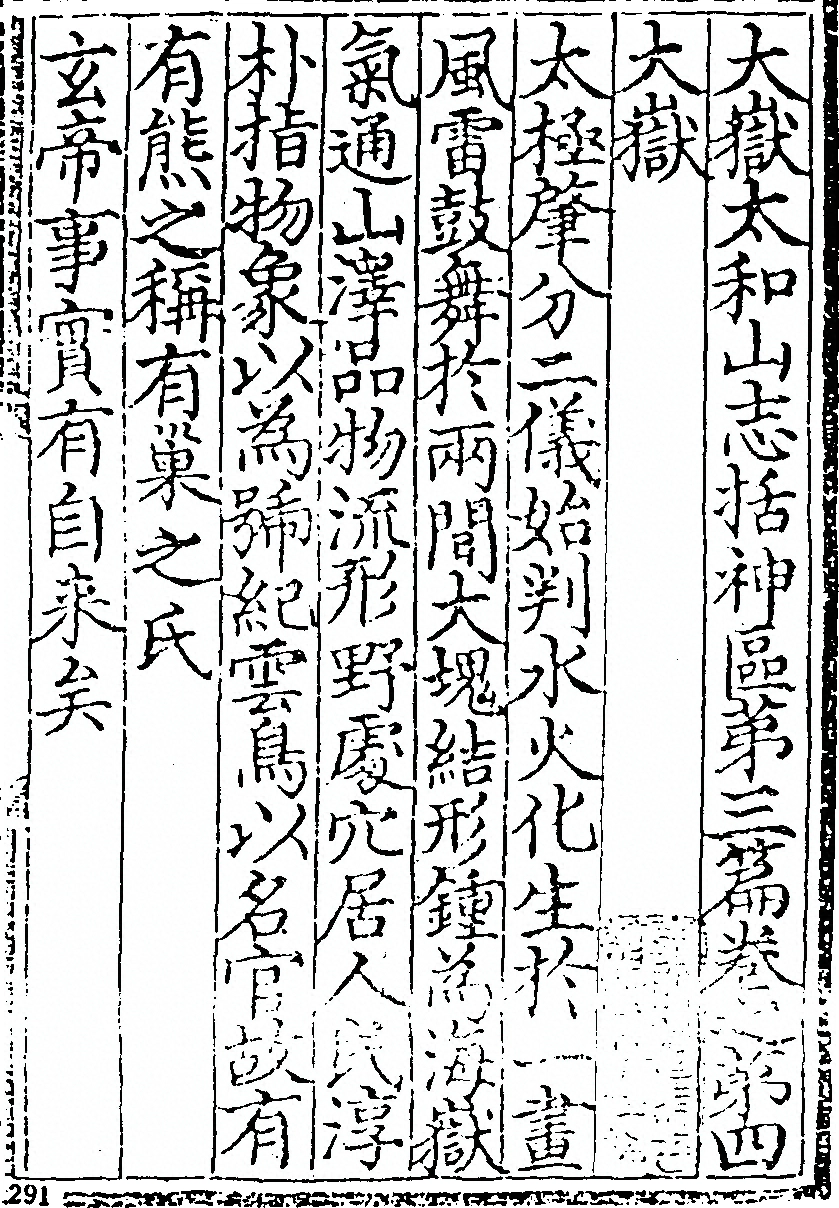 大嶽太和山志括神區第三篇卷之第四
大嶽
太極肇分二儀始判水火化生於一畫
風雷鼓舞於兩間大塊結形鍾為海嶽
氣通山澤品物流形野處穴居人民淳
朴指物象以為號紀雲鳥以名官故有
有熊之稱有巢之氏
玄帝事實有自来矣
291